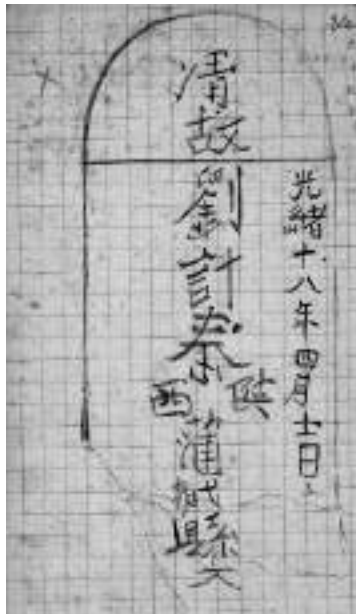 光緒十八年四月十一日
清故劉計泰陝西蒲城縣人